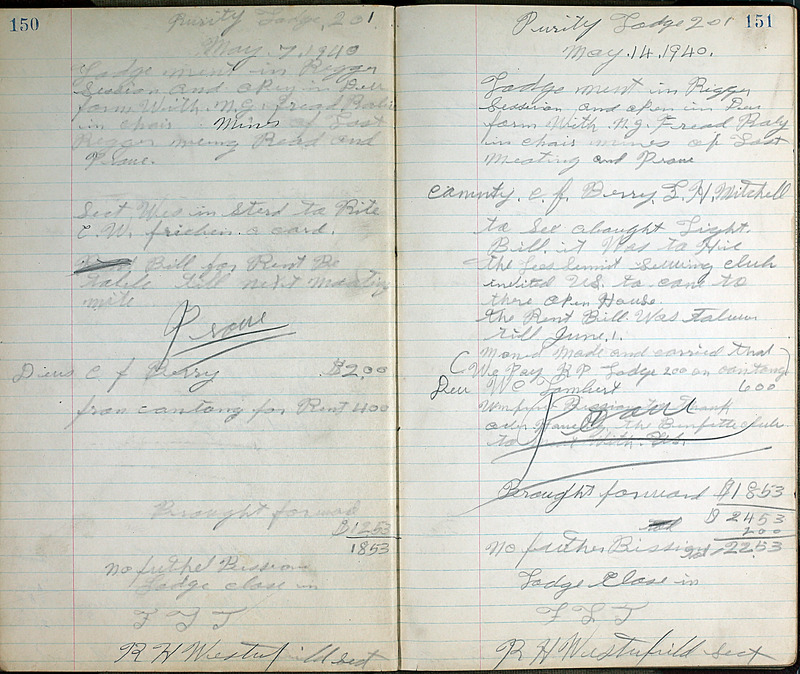 150
Purity Lodge, 201
May 7, 1940
Lodge ment in Regger
Session and open in Deu
form With N.G. Fread Rabi
in chair Mins of Last
Regger meing Read and
Prove.
Sect Wes in Sterd to Rite
C. W. frichen a card.
Bill for Rent Be
tabele till next meating
nite
Prove
Dieus C. f Berry $2.00
fron cantong for Rent 400
Brought forwad
$1253
1853
No futhel Bission
Lodge close in
F L T
R H Westerfield sect
151
Purity Lodge 201
May, 14, 1940.
Lodge ment in Rigger
Session and open in Deu
form With N.G. Fread Raby
in chair mines of Last
Meating and Prove
Camunty. C. f. Berry L. H. Mitchell
to See abaught Light.
Bill it Was to Hie
the Sewing club
invited US. to com to
there open House.
the Rent Bill Was tabuen
till June, 1.
Moned made and carried that
We Pay K P Lodge 200 on cantong
Deu W C Lambert 600
Thank
the
to With
Prove
Brought forward $1853
$2453
200
No futher Bission 2253
Lodge Close in
F L T
R H Westerfield sect